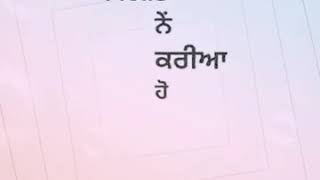 ਨੇਂ
ਕਰੀਆ
ਹੋ